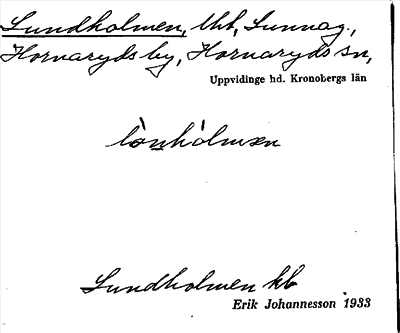 Lundholmen, tht, Sunnag.,
Hornaryds by, Hornaryds sn,
Uppvidinge hd. Kronobergs län
lònhòlmæn
Lundholmen kb
Erik Johannesson 1933